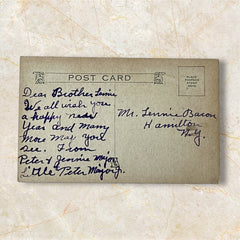 POST CARD
PLACE
STAMP
HERE
Dear Brother Lennie
We all wish you
a happy new
Year and Many
More May you
See. From
Peter & Jennie Major
Little Peter Major Jr.
Mr. Lennie Bacon
Hamilton
N.Y.